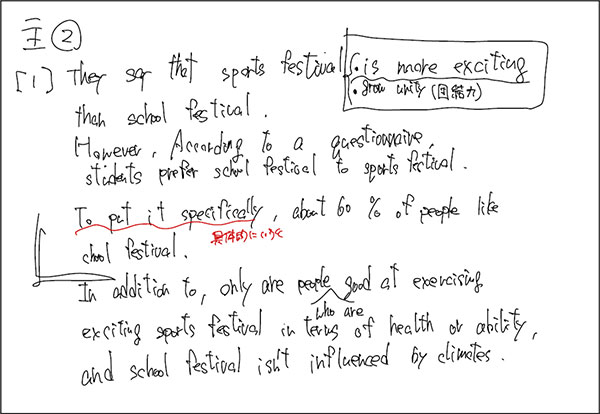 主②
[1] They say that sports festival ・is more exciting
・grow unity (団結力)
than school festival.
However, According to a questionnaire,
students prefer school festival to sports festival.
To put it specifically, about 60 % of people like
具体的にいうと
chool festival.
In addition to, only are people good at exercising
who are
exciting sports festival in terms of health or ability,
and school festival isn't influenced by climates.